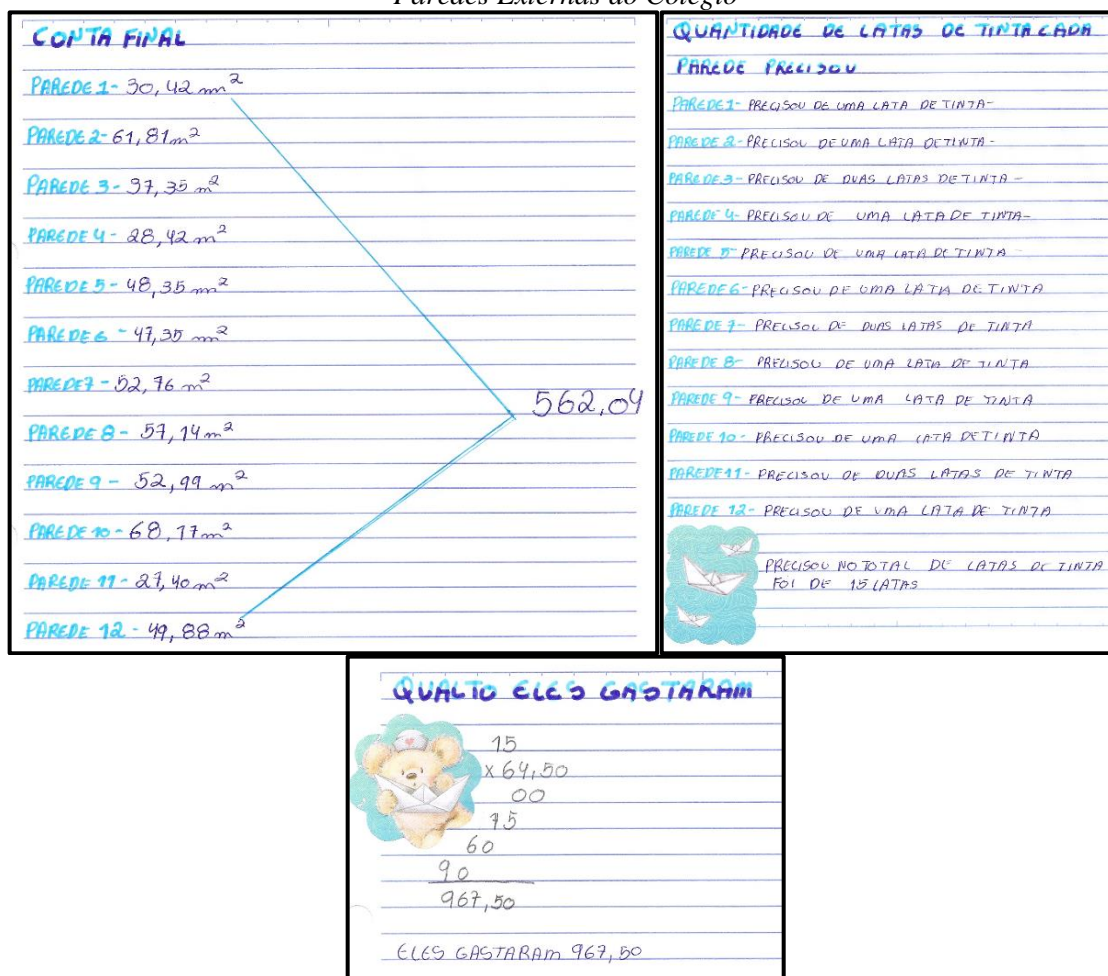 Paredes Externas do Colégio
CONTA FINAL
PAREDE 1- 30,42 m²
PAREDE 2- 61,81m²
PAREDE 3- 37,35 m²
PAREDE 4- 28,42 m²
PAREDE 5- 48,35 m²
PAREDE 6 - 47,35 m²
PAREDE 7 - 52,76 m²
PAREDE 8 - 57,14 m²
PAREDE 9 - 52,99 m²
PAREDE 10 - 68,17 m²
PAREDE 11 - 27,40 m²
PAREDE 12 - 49,88 m²
562,04
QUANTIDADE DE LATAS DE TINTA CADA
PAREDE PRECISOU
PAREDE 1- PRECISOU DE UMA LATA DE TINTA-
PAREDE 2- PRECISOU DE UMA LATA DE TINTA-
PAREDE 3- PRECISOU DE DUAS LATAS DE TINTA -
PAREDE 4- PRECISOU DE UMA LATA DE TINTA-
PAREDE 5- PRECISOU DE UMA LATA DE TINTA
PAREDE 6- PRECISOU DE UMA LATA DE TINTA
PAREDE 7- PRECISOU DE DUAS LATAS DE TINTA
PAREDE 8- PRECISOU DE UMA LATA DE TINTA
PAREDE 9- PRECISOU DE UMA LATA DE TINTA
PAREDE 10- PRECISOU DE UMA LATA DE TINTA
PAREDE 11- PRECISOU DE DUAS LATAS DE TINTA
PAREDE 12- PRECISOU DE UMA LATA DE TINTA
PRECISOU NO TOTAL DE LATAS DE TINTA
FOI DE 15 LATAS
QUALTO ELES GASTARAM
15
x 64,50
00
75
60
90
967,50
ELES GASTARAM 967,50